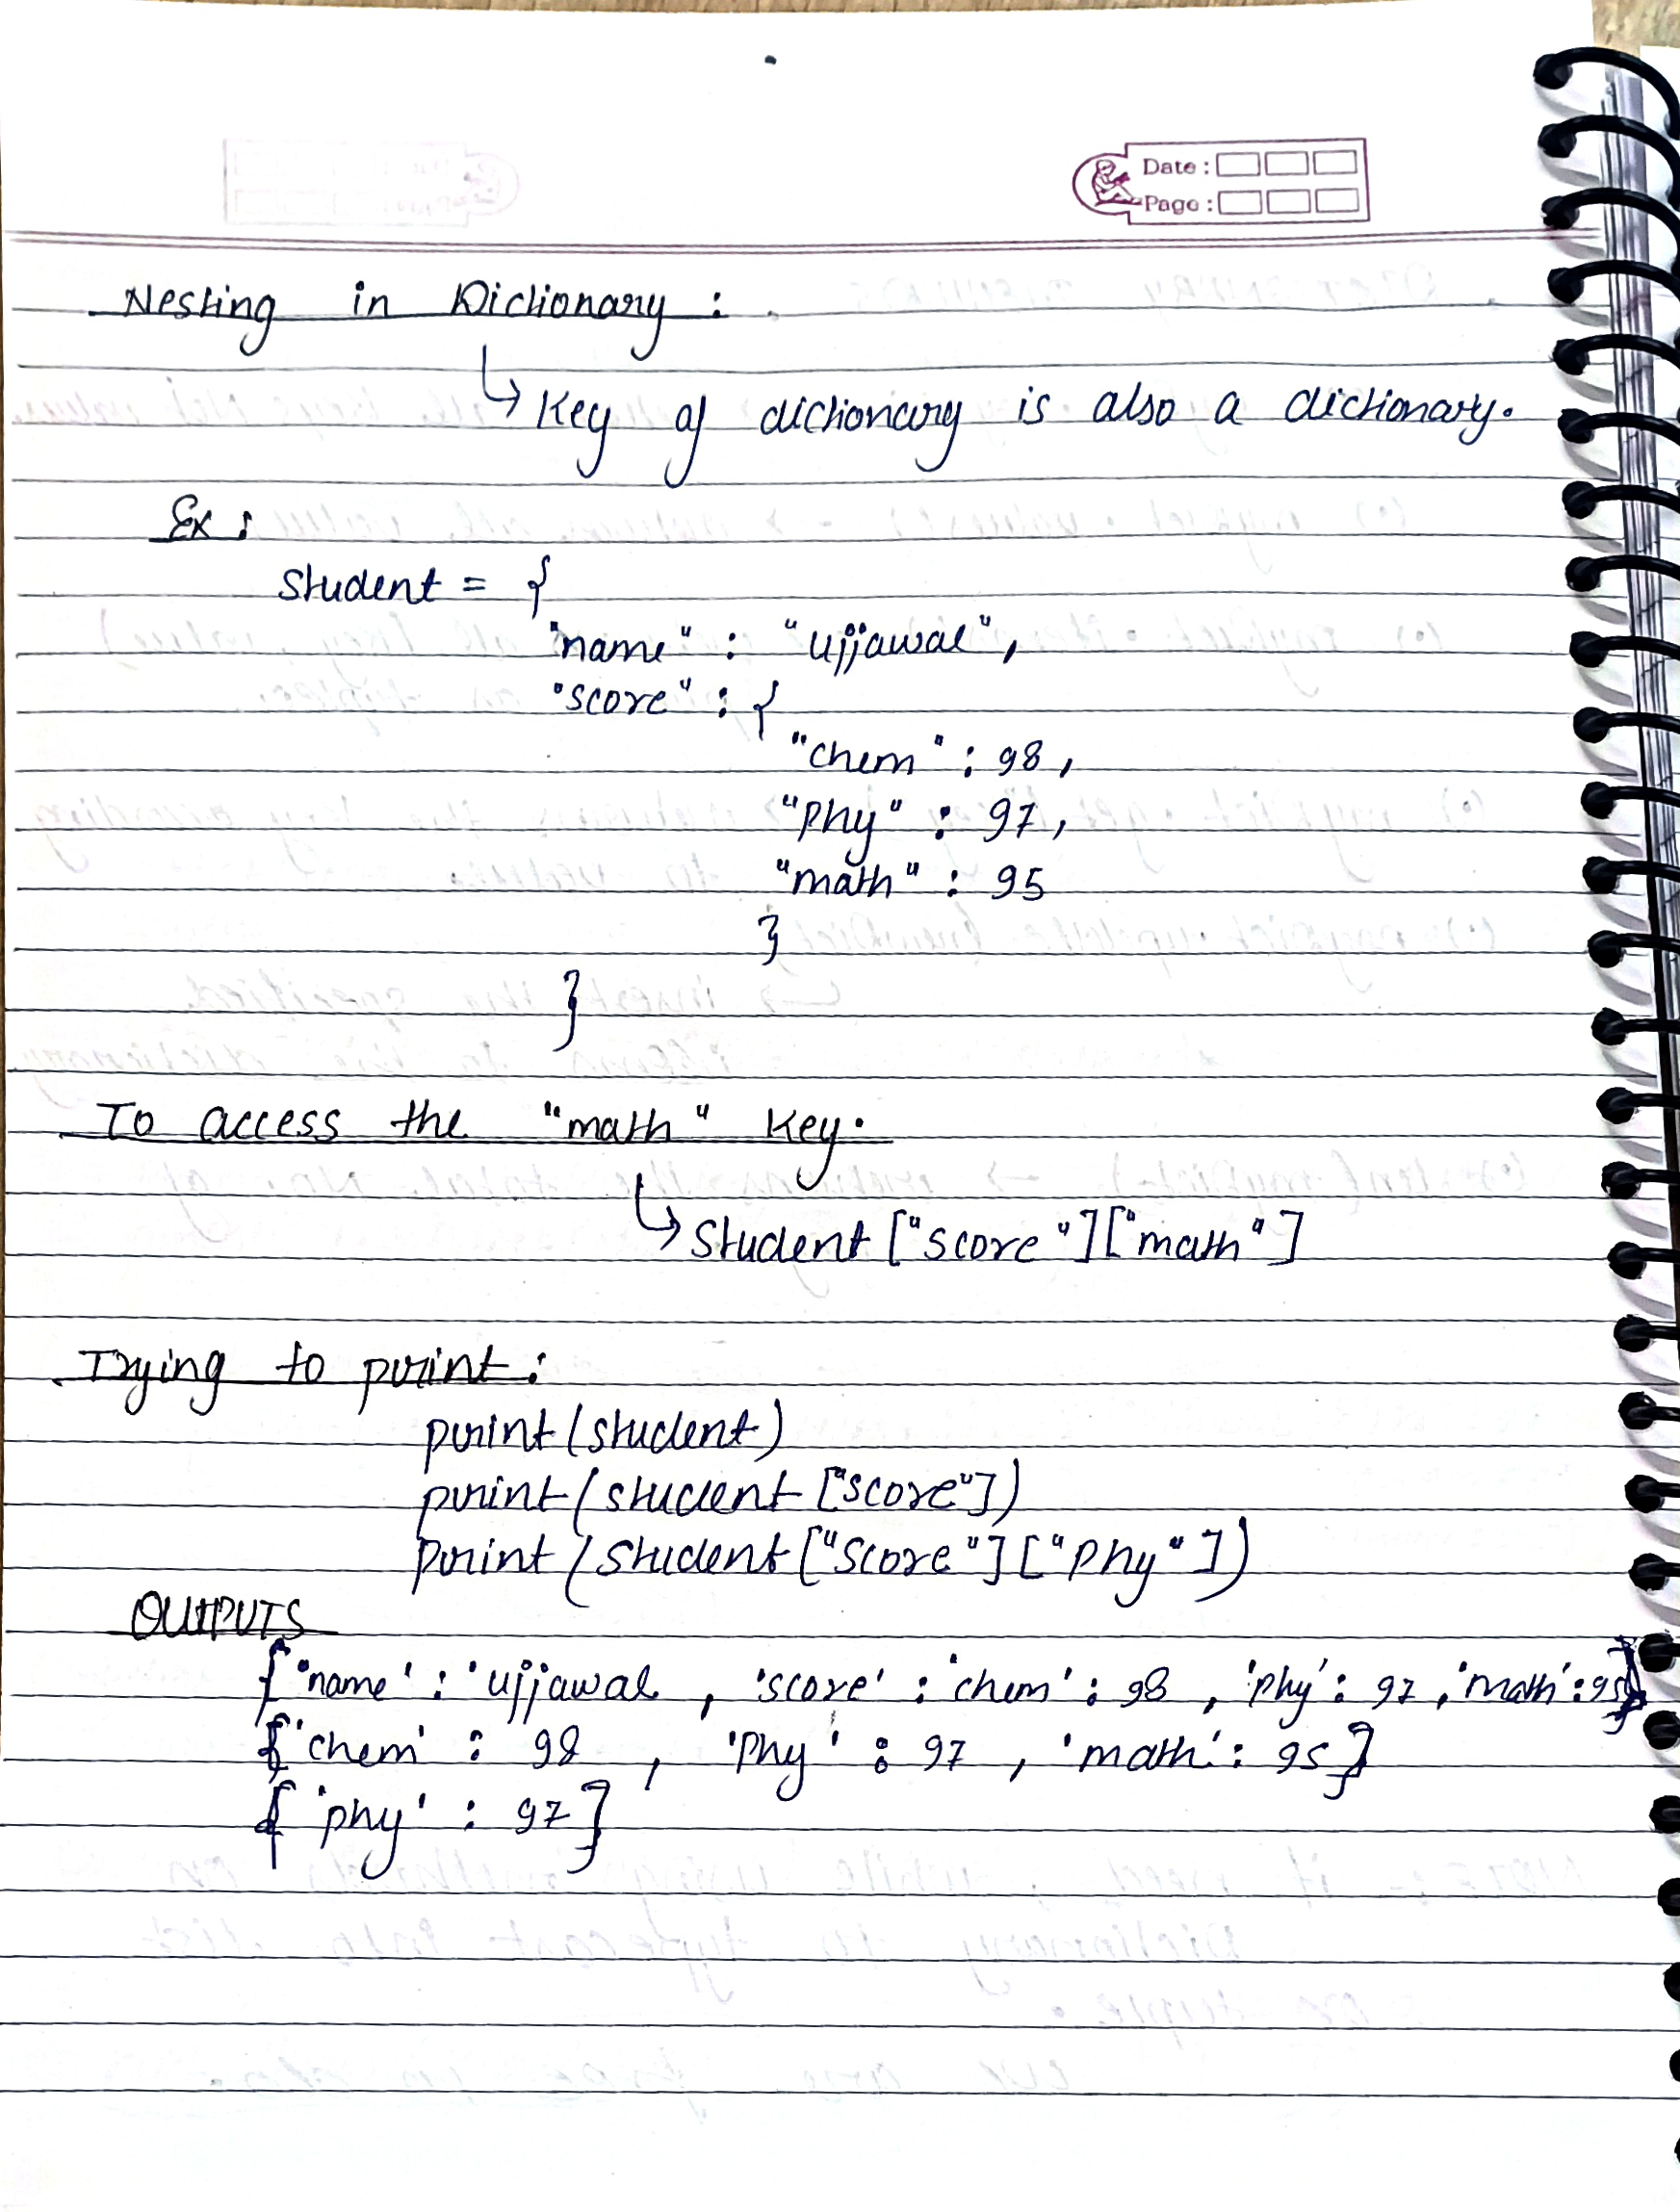 Date :
Page :
Nesting in Dictionary :
↳ Key of dictionary is also a dictionary.
Ex :
Student = {
"name" : "Ujjawal",
"score" : {
"chem" : 98 ,
"Phy" : 97 ,
"math" : 95
}
}
To access the "math" Key.
↳ Student ["score"]["math"]
Trying to print :
print (student)
print (student ["score"])
print (student ["score"] ["Phy"])
OUTPUTS
{'name' : 'Ujjawal , 'score' : 'chem' : 98 , 'Phy' : 97 , 'math' : 95}
{'chem' : 98 , 'Phy' : 97 , 'math' : 95}
{'phy' : 97}